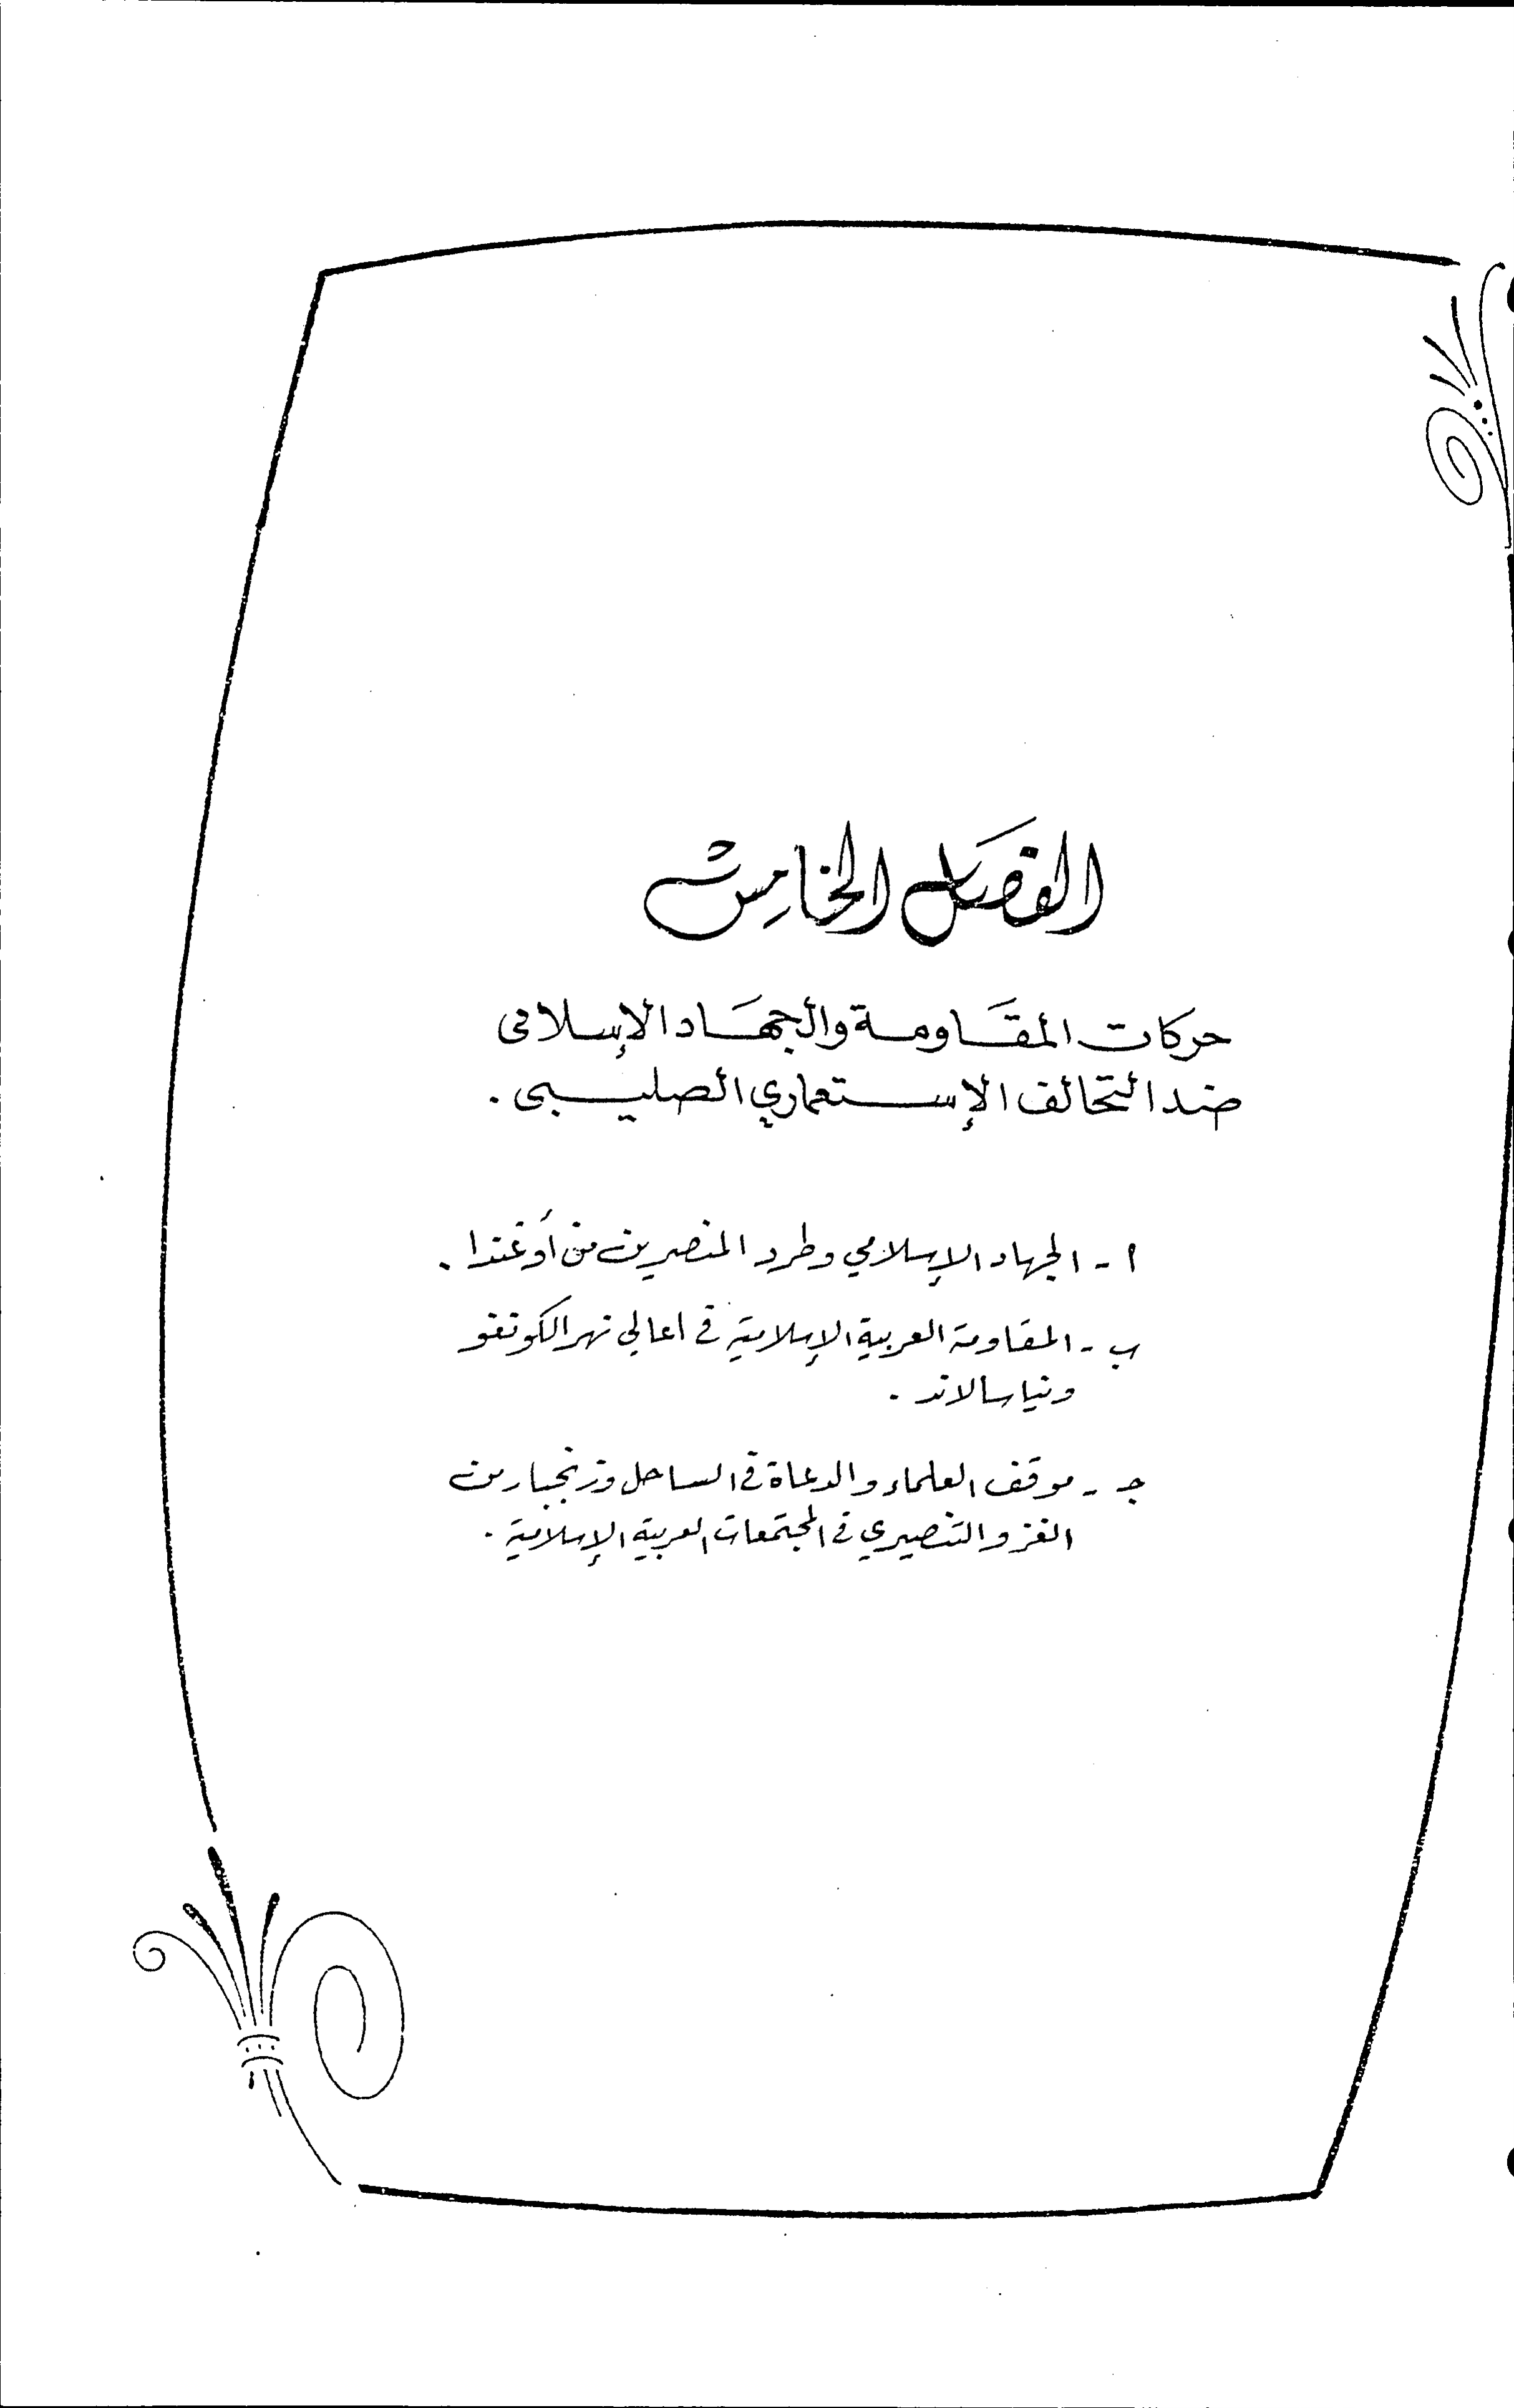 الفصل الخامس
حركات المقاومة والجهاد الإسلامى
ضد التحالف الإستعماري الصليبى .
ا - الجهاد الإسلامي وطرد المنصرين من أوغندا .
ب - المقاومة العربية الإسلامية في اعالي نهر الكونغو
ونياسالاند .
جـ - موقف العلماء والدعاة في الساحل وزنجبار من
الغزو التنصيري في المجتمعات العربية الإسلامية .